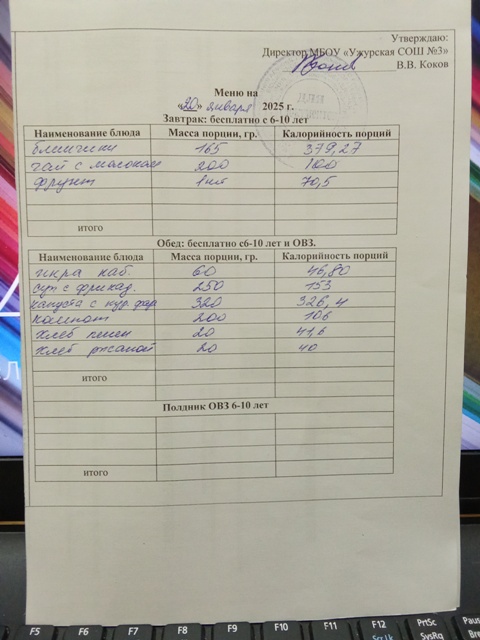 Утверждаю:
Директор МБОУ «Ужурская СОШ №3»
В.В. Коков
Меню на
«20» января 2025 г.
Завтрак: бесплатно с 6-10 лет
Наименование блюда Масса порции, гр. Калорийность порций
блинчики 165 379,27
чай с молоком 200 100
фрукт 1 шт 70,5
итого
Обед: бесплатно с6-10 лет и ОВЗ.
Наименование блюда Масса порции, гр. Калорийность порций
икра каб. 60 46,80
суп с фрикад. 250 153
капуста с кур. фар 320 326,4
компот 200 106
хлеб пшен 20 41,6
хлеб ржаной 20 40
итого
Полдник ОВЗ 6-10 лет
итого
F5 F6 F7 F8 F9 F10 F11 F12 PrtSc
ScrLk SysRq